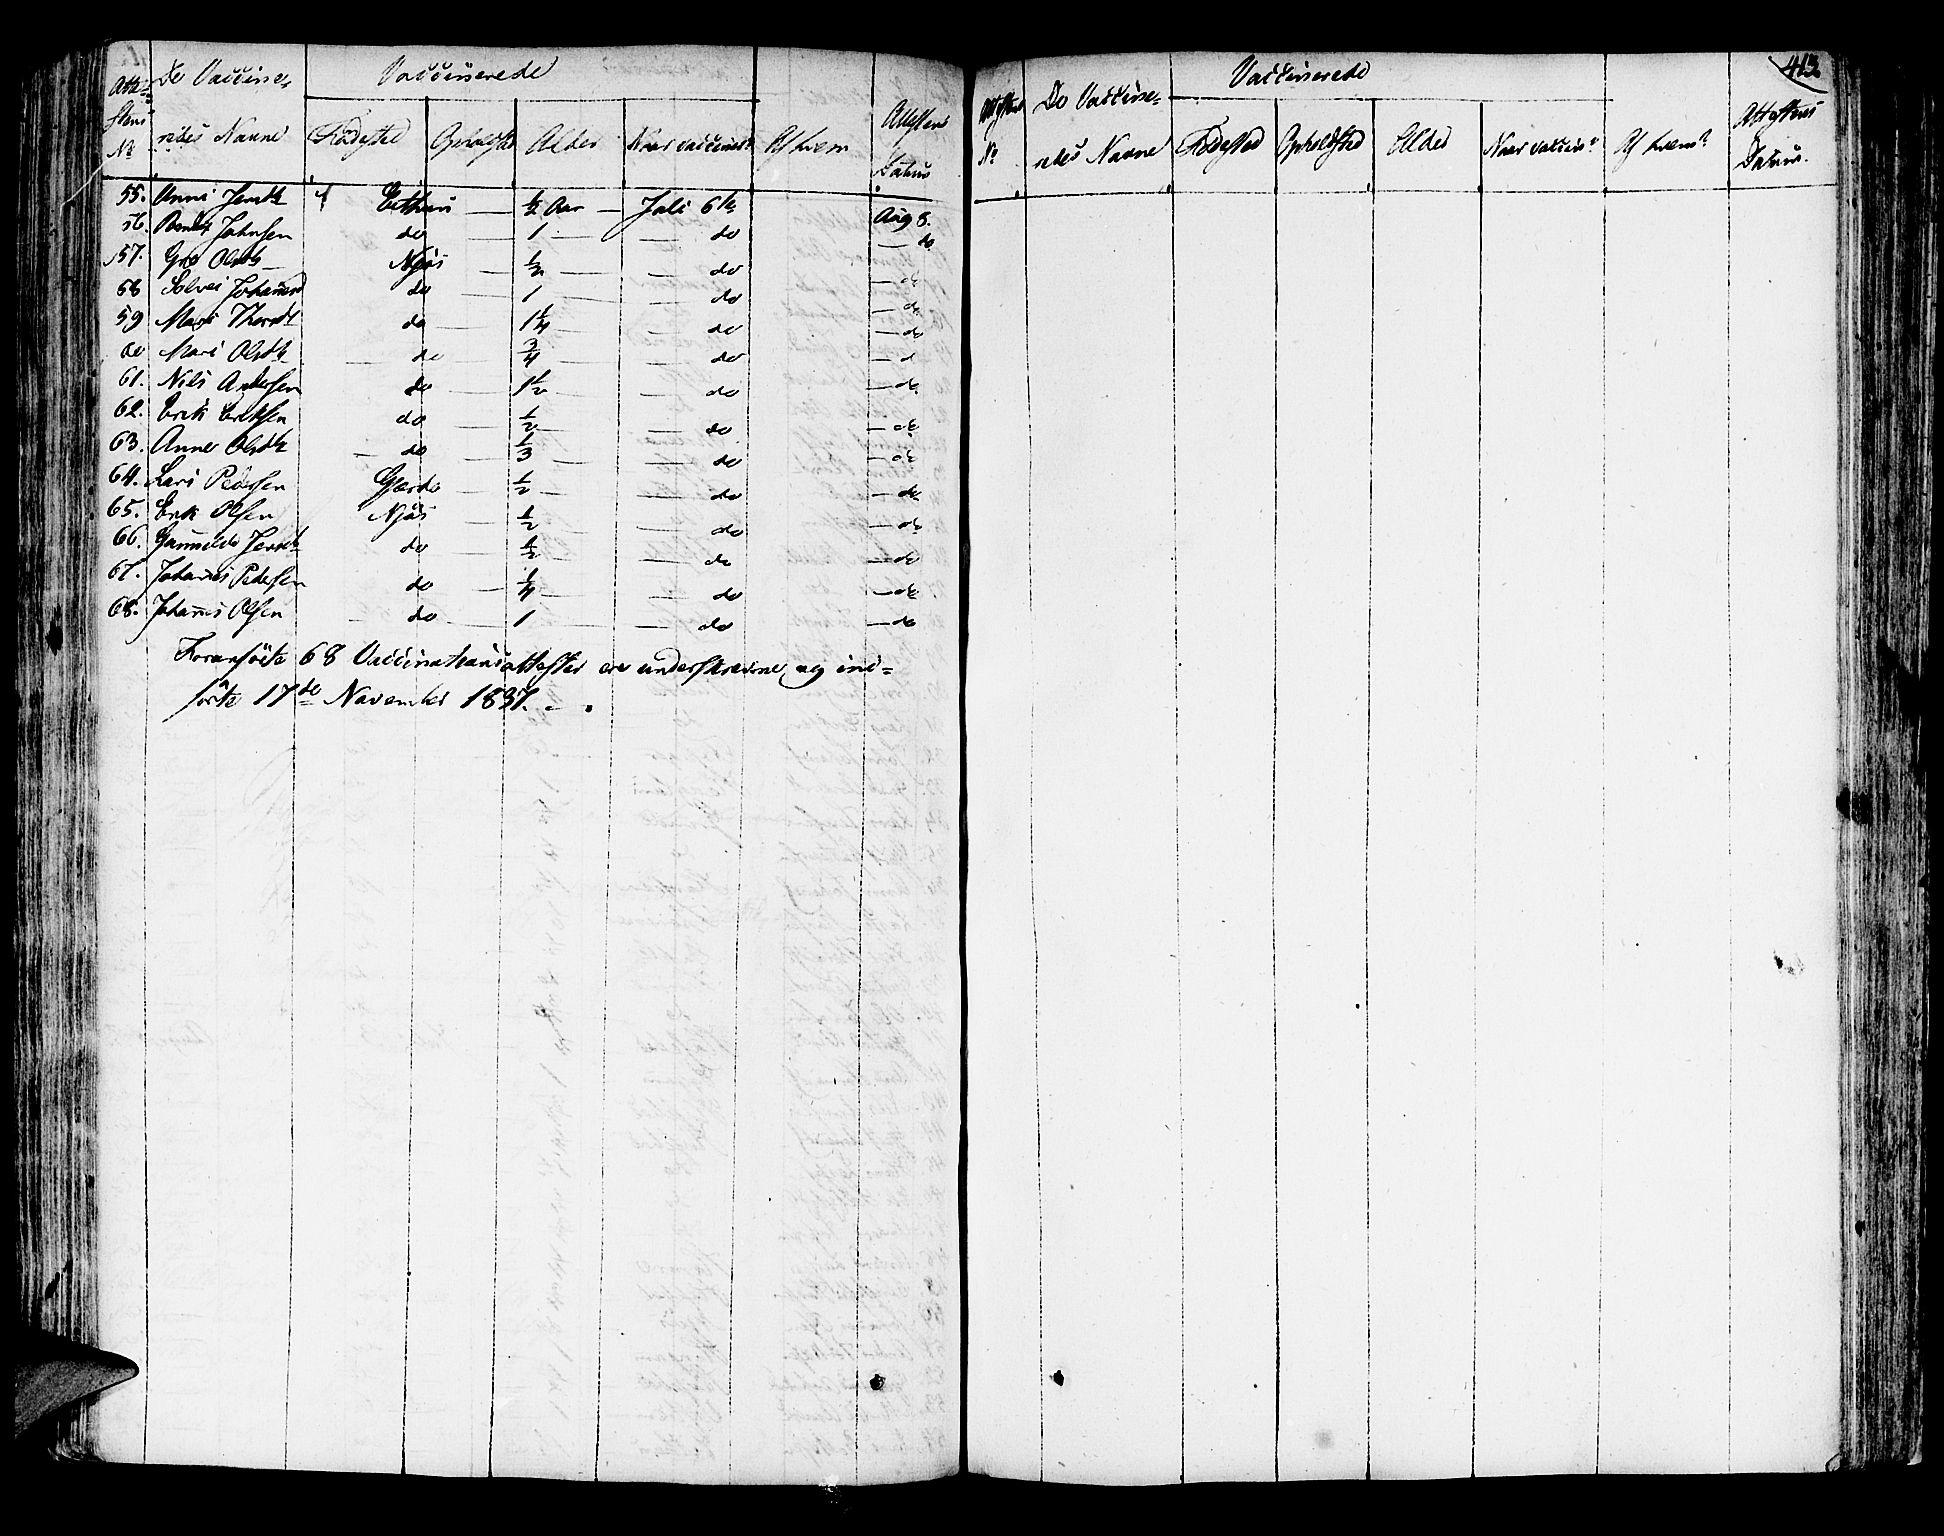 De Vaccine- Vaccinerede
Attestens redes Navne Födested Opholdsted Alder Naar vaccineret Af hvem Attestens
No Datum
55. Anne Jensdtr Eithun ½ Aar — Juli 6te Aug 8.
56. Johnsen do — 1 — do — do
57. Gro Olsdtr Njøs — ½ — do — do
58 Solvei do — 1 — do — do
59 Mari do — 1¼ — do — do
60 Mari Olsdtr — do — ¾ — do — do
61. Nils Andersen do — 1½ — do — do
62. Erik Eriksen do — ½ — do — do
63. Anne Olsdtr — do — ⅓ — do — do
64. Lars Pedersen Gjerde — ½ — do — do
65. Erik Olsen Njøs — ½ — do — do
66. Gunnilde do — ½ — do — do
67. Johannes Pedersen do — ¼ — do — do
68. Johannes Olsen — do — 1 — do — do
Foranförte 68 Vaccinationsattester ere underskrevne og ind-
förte 17de November 1837.
413.
De Vaccine- Vaccinerede
Attestens redes Navne Födested Opholdsted Alder Naar vaccint Af hvem? Attestens
No Datum.